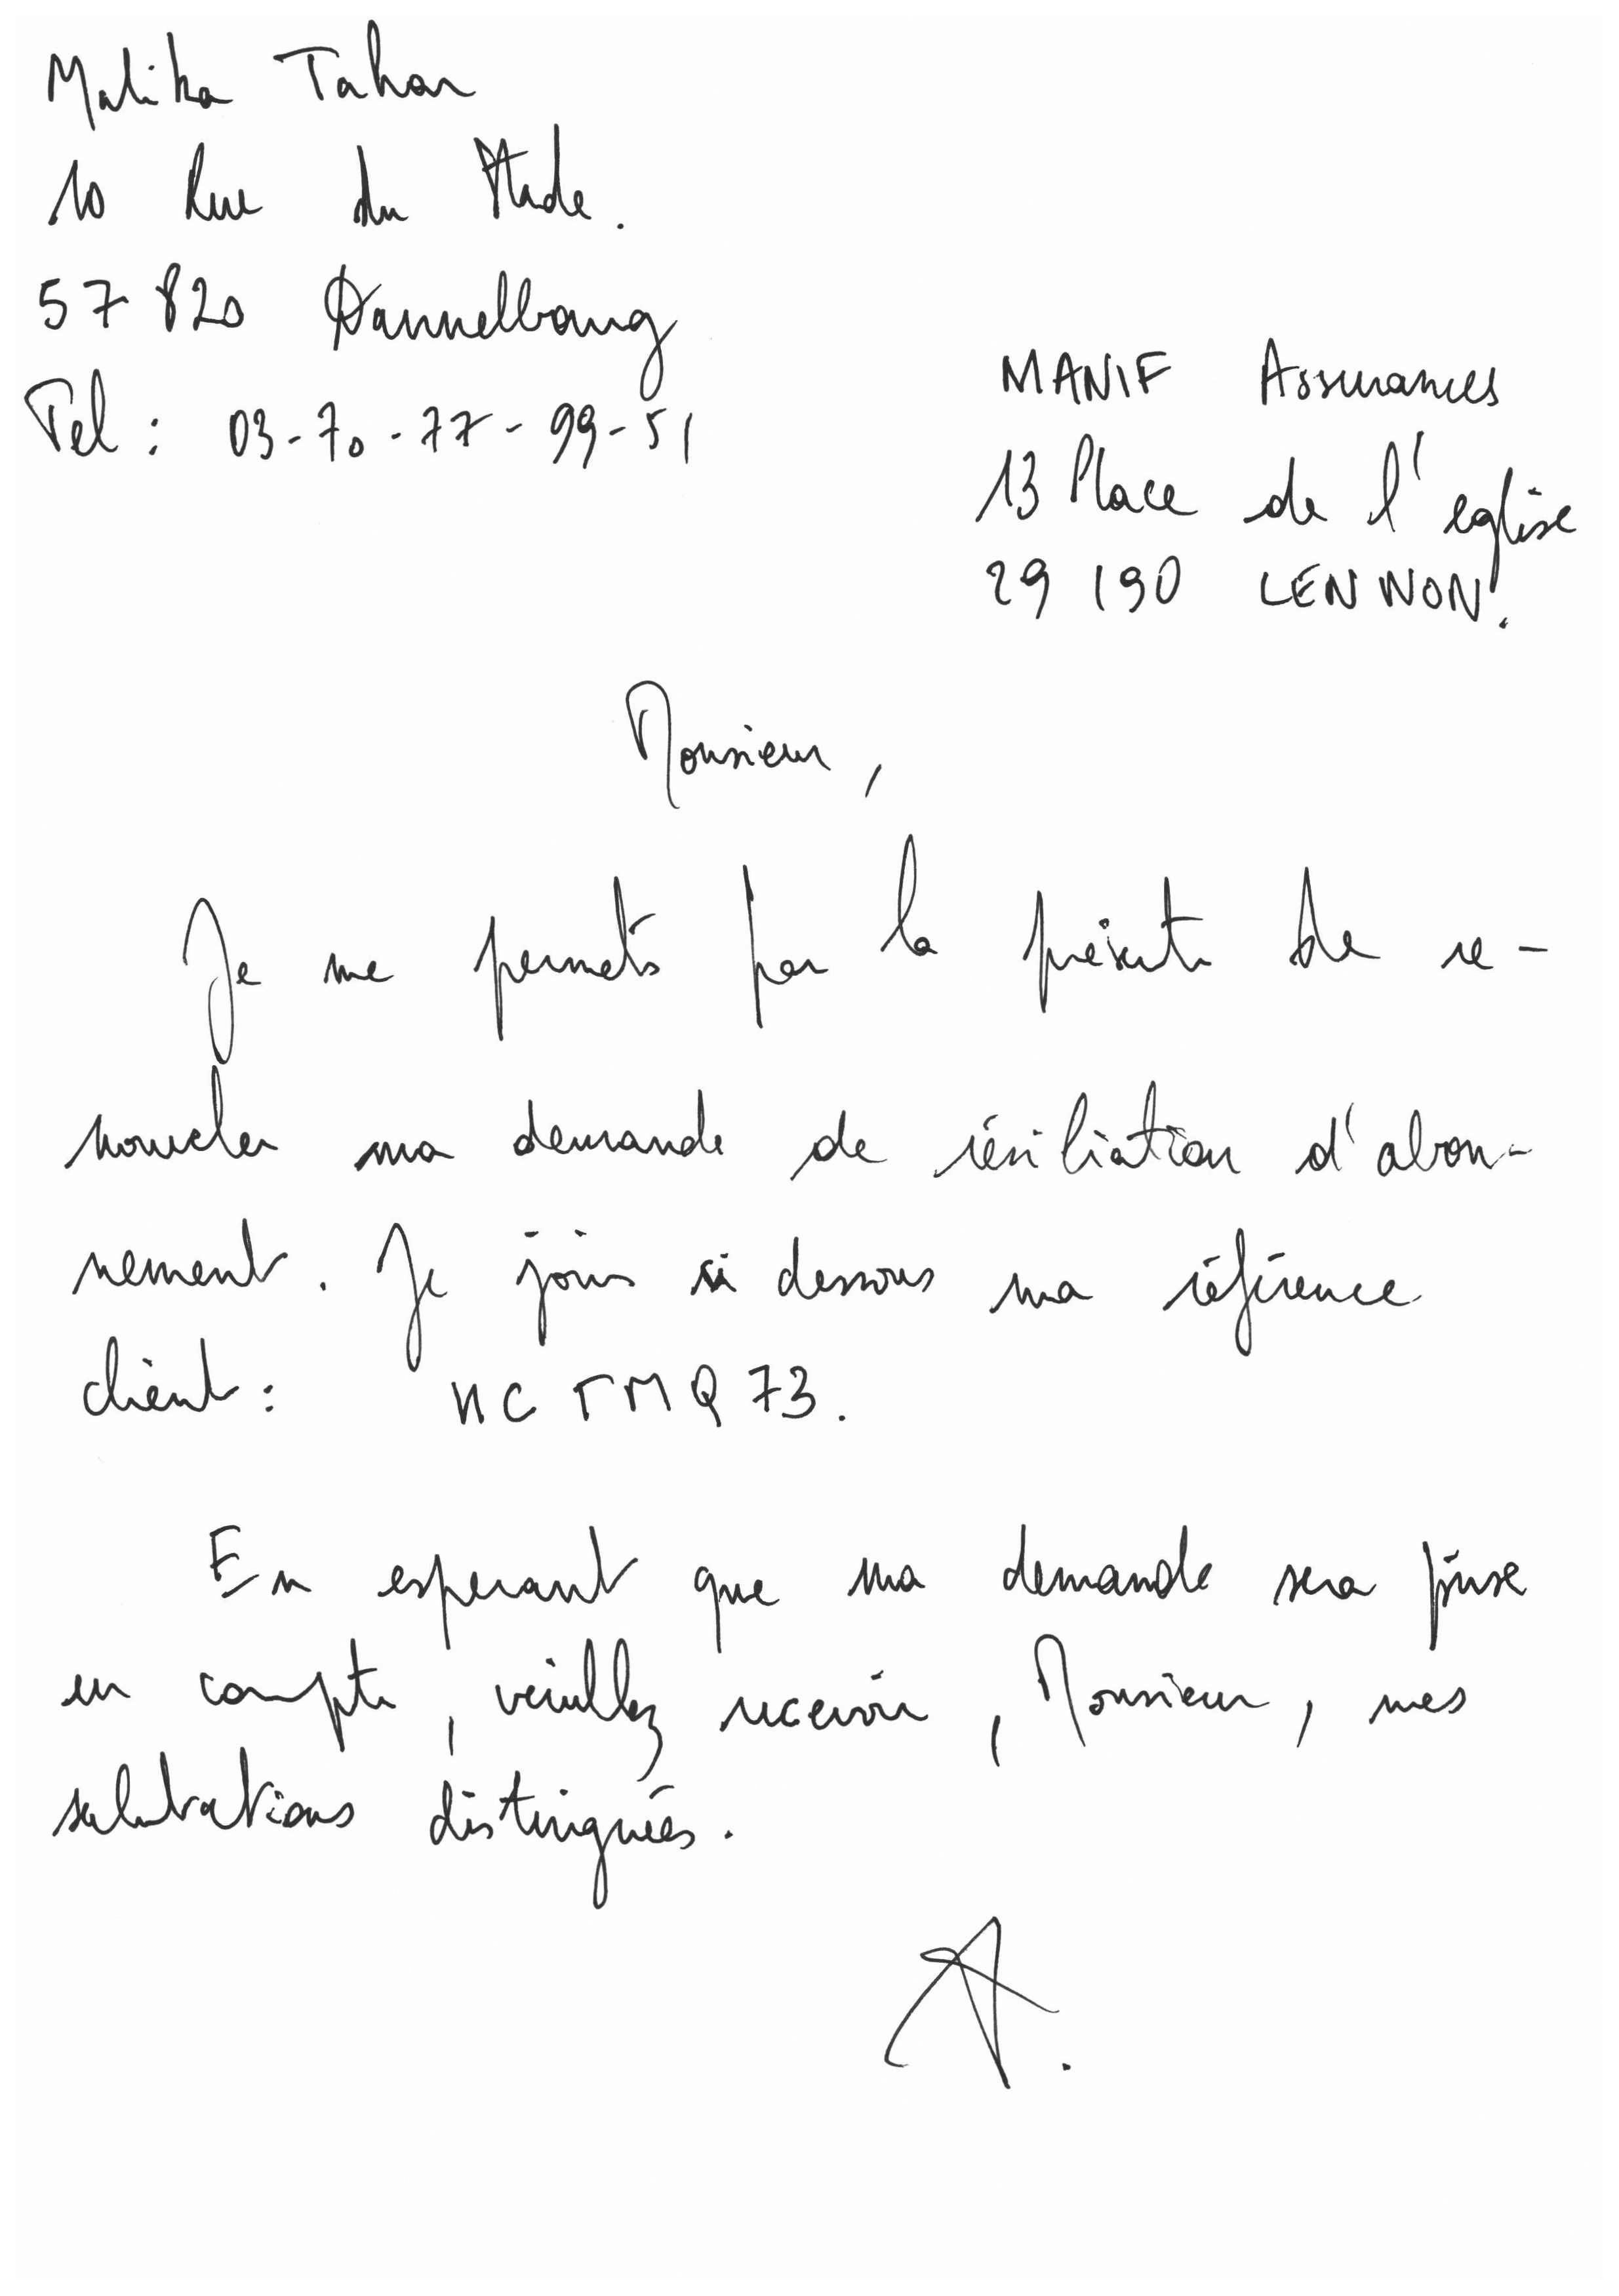 Malika Tahar
10 Rue du Stade.
57 820 Dannelbourg
Tel : 03-70-77-99-51
MANIF Assurances
13 Place de l'eglise
29 190 LENNON.
Monsieur,
Je me permets par la présente de re-
nouveler ma demande de résiliation d'abon-
nement. Je joins si dessous ma référence
client : NCTMQ73.
En esperant que ma demande sera prise
en compte, veuillez recevoir, Monsieur, mes
salutations distinguées.